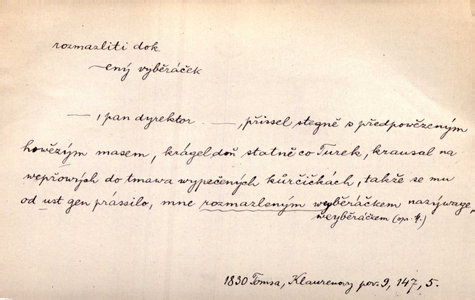 rozmazliti dok
—ený vyběráček
— , pan dyrektor — , přissel stegně s předpověženým
howězým masem, krágel doň statně co Turek, krausal na
wepřowých do tmawa wypečených kůrčičkách, takže se mu
od ust gen prássilo, mne rozmazleným wyběráčkem nazýwage,
weyběráčkem (op. 4.)
1830 Tomsa, Klaurenovy pov. 9, 147, 5.